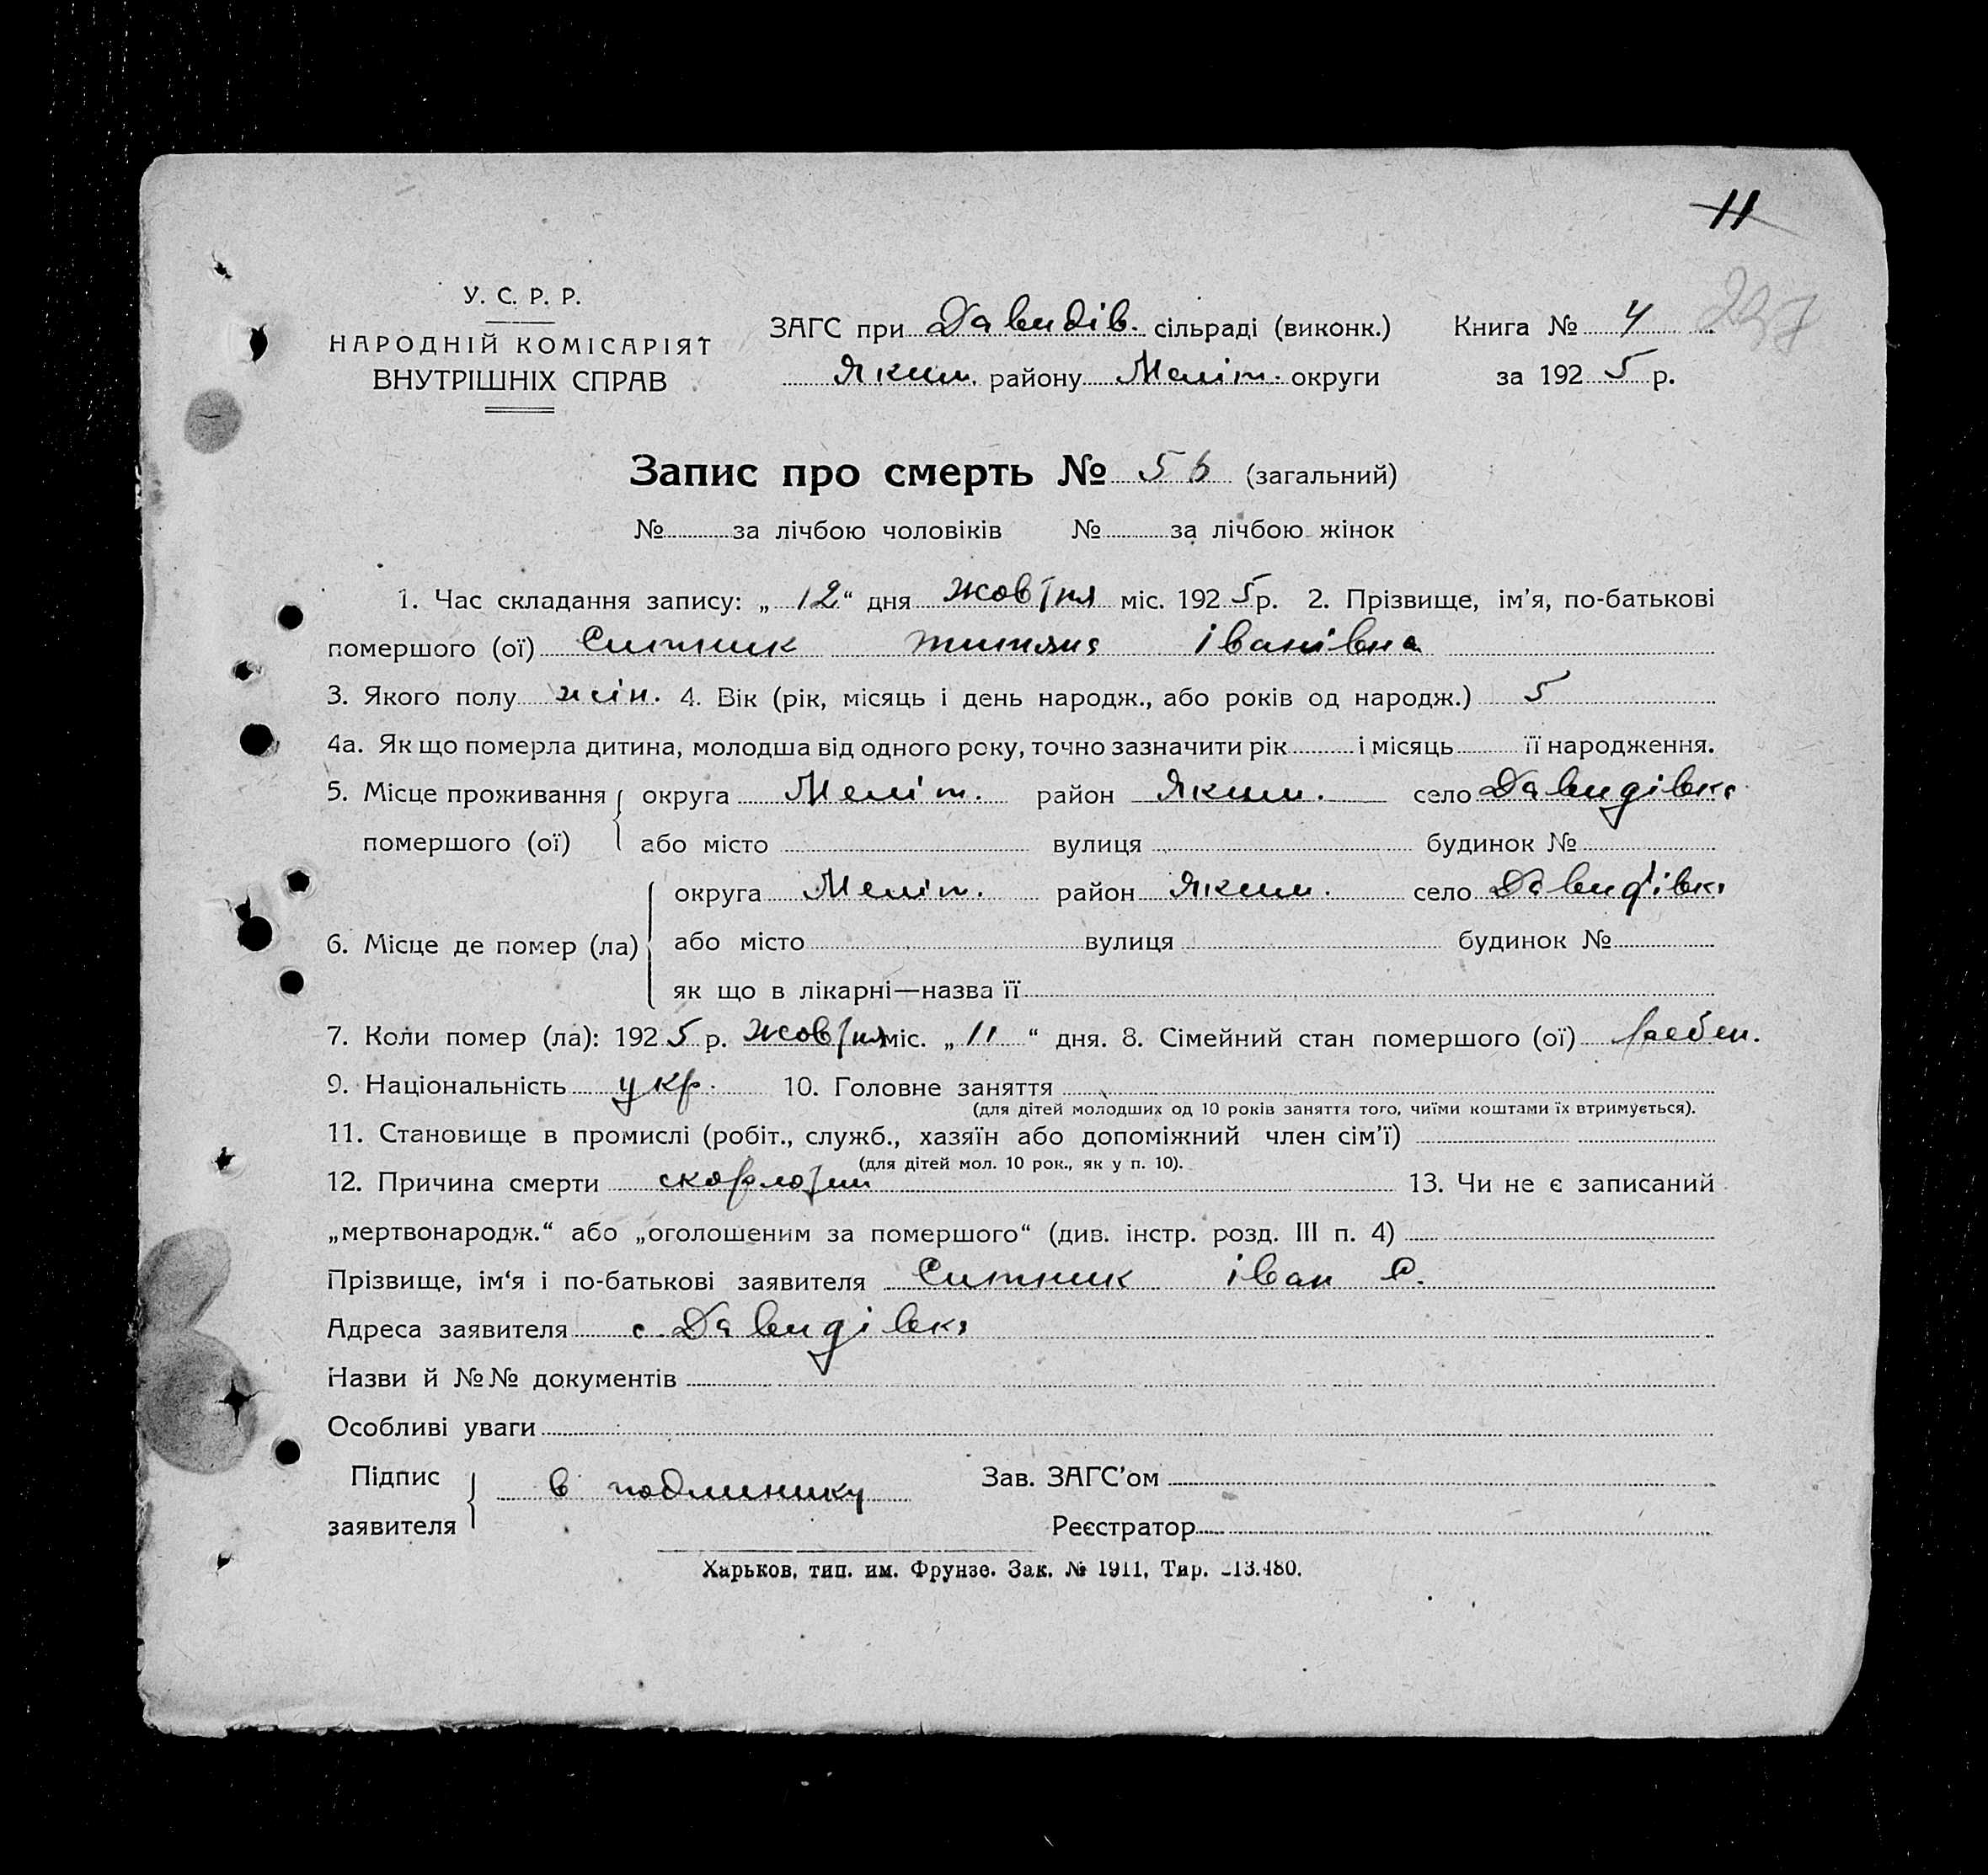 11
237
У. С. Р. Р.
НАРОДНІЙ КОМІСАРІЯТ
ВНУТРІШНІХ СПРАВ
ЗАГС при Давидів. сільраді (виконк.) Книга № 4
Яким. району Меліт. округи за 1925 р.
Запис про смерть № 56 (загальний)
№ за лічбою чоловіків № за лічбою жінок
1. Час складання запису: „12“ дня жовтня міс. 1925 р. 2. Прізвище, ім'я, по-батькові
помершого (ої) Ситник Титяна Іванівна
3. Якого полу жін. 4. Вік (рік, місяць і день народж., або років од народж.) 5
4а. Як що померла дитина, молодша від одного року, точно зазначити рік і місяць її народження.
5. Місце проживання округа Меліт. район Яким. село Давидівка
помершого (ої) або місто вулиця будинок №
округа Меліт. район Яким. село Давидівка
6. Місце де помер (ла) або місто вулиця будинок №
як що в лікарні—назва її
7. Коли помер (ла): 1925 р. жовтня міс. „11“ дня. 8. Сімейний стан помершого (ої)
9. Національність укр. 10. Головне заняття
(для дітей молодших од 10 років заняття того, чиїми коштами їх втримується).
11. Становище в промислі (робіт., служб., хазяїн або допоміжний член сім'ї)
(для дітей мол. 10 рок., як у п. 10).
12. Причина смерти скорлотин 13. Чи не є записаний
„мертвонародж.“ або „оголошеним за помершого“ (див. інстр. розд. III п. 4)
Прізвище, ім'я і по-батькові заявителя Ситник Іван С.
Адреса заявителя с. Давидівка
Назви й №№ документів
Особливі уваги
Підпис заявителя в подлинику Зав. ЗАГС'ом
Реєстратор
Харьков, тип. им. Фрунзе. Зак. № 1911, Тир. 213.480.